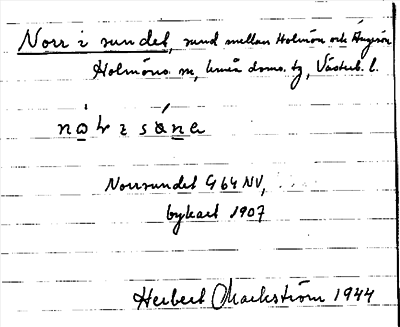 Norr i sundet, sund mellan Holmön och Ängesön
Holmöns sn, Umeå doms. tg, Västerb. l.
Norrsundet G 64 NV,
bykart 1907
Herbert Markström 1944